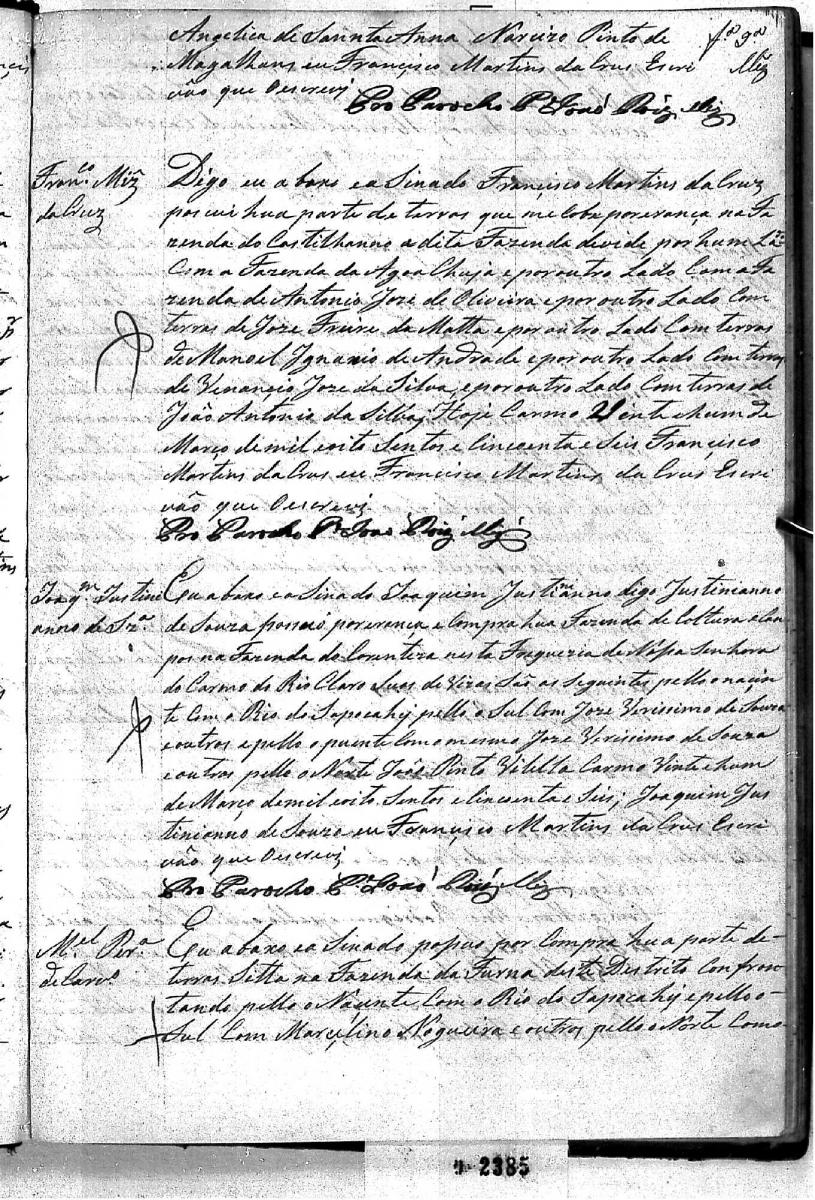 Angelica de Sannta Anna Narcizo Pinto de
Magalhans eu Françisco Martins da Crus Escri
vão que Oescrevi
Pro Parocho Pe João Roiz Miz
Franco. Miz
da Cruz
Digo eu abaxo eaSinado Françisco Martins da Cruz
posui hua parte de terras que me Coba porerança na Fa
zenda do Castilhanno adita Fazenda devide por hum La
Com a Fazenda da Agoa Chuja eporoutro Lado Com a Fa
zenda de Antonio Joze de Oliveira eporoutro Lado Com
terras de Joze Freire da Matta eporoutro Lado Com terras
de Manoel Ignacio de Andrade eporoutro Lado Com terras
de Venançio Joze da Silva, eporoutro Lado Com terras de
João Antonio da Silva; Hoje Carmo Vente ehum de
Março demil eoito Sentos e Cincoenta e Seis Françisco
Martins da Crus eu Francisco Martins da Crus Escri
vão que Oescrevi
Pro Parocho Pe João Roiz Miz
Joaqm. Justini
anno de Sza.
Eu abaxo eaSinado Joaquim Justimanno digo Justinianno
de Souza posuo porerança e Compra hua Fazenda de Coltura eCan
pos na Fazenda do Counteza nesta Freguezia de Nósa Senhora
do Carmo do Rio Claro Suas de Vizas São as Seguintes pello onacin
te Com o Rio do Sapocahÿ pello o Sul Com Joze Verissimo de Souza
eoutros epello opuente Comomesmo Joze Verissimo de Souza
eoutros pello o Norte João Pinto Vilella Carmo Vinte ehum
de Março demil eoito Sentos eCincoenta e Seis; Joaquim Jus
tinianno de Souza eu Françisco Martins da Crus Escri
vão que Oescrevi
Pro Parocho Pe João Roiz Miz
Mel. Pera.
de Carvo.
Eu abaxo eaSinado posuo por Compra hua parte de
terras Sitta na Fazenda da Furna deste Destrito Confron
tando pello o Naente Com o Rio do Sapocahÿ epello o
Sul Com Marçelino Nogueira eoutros pello o Norte Como
2385